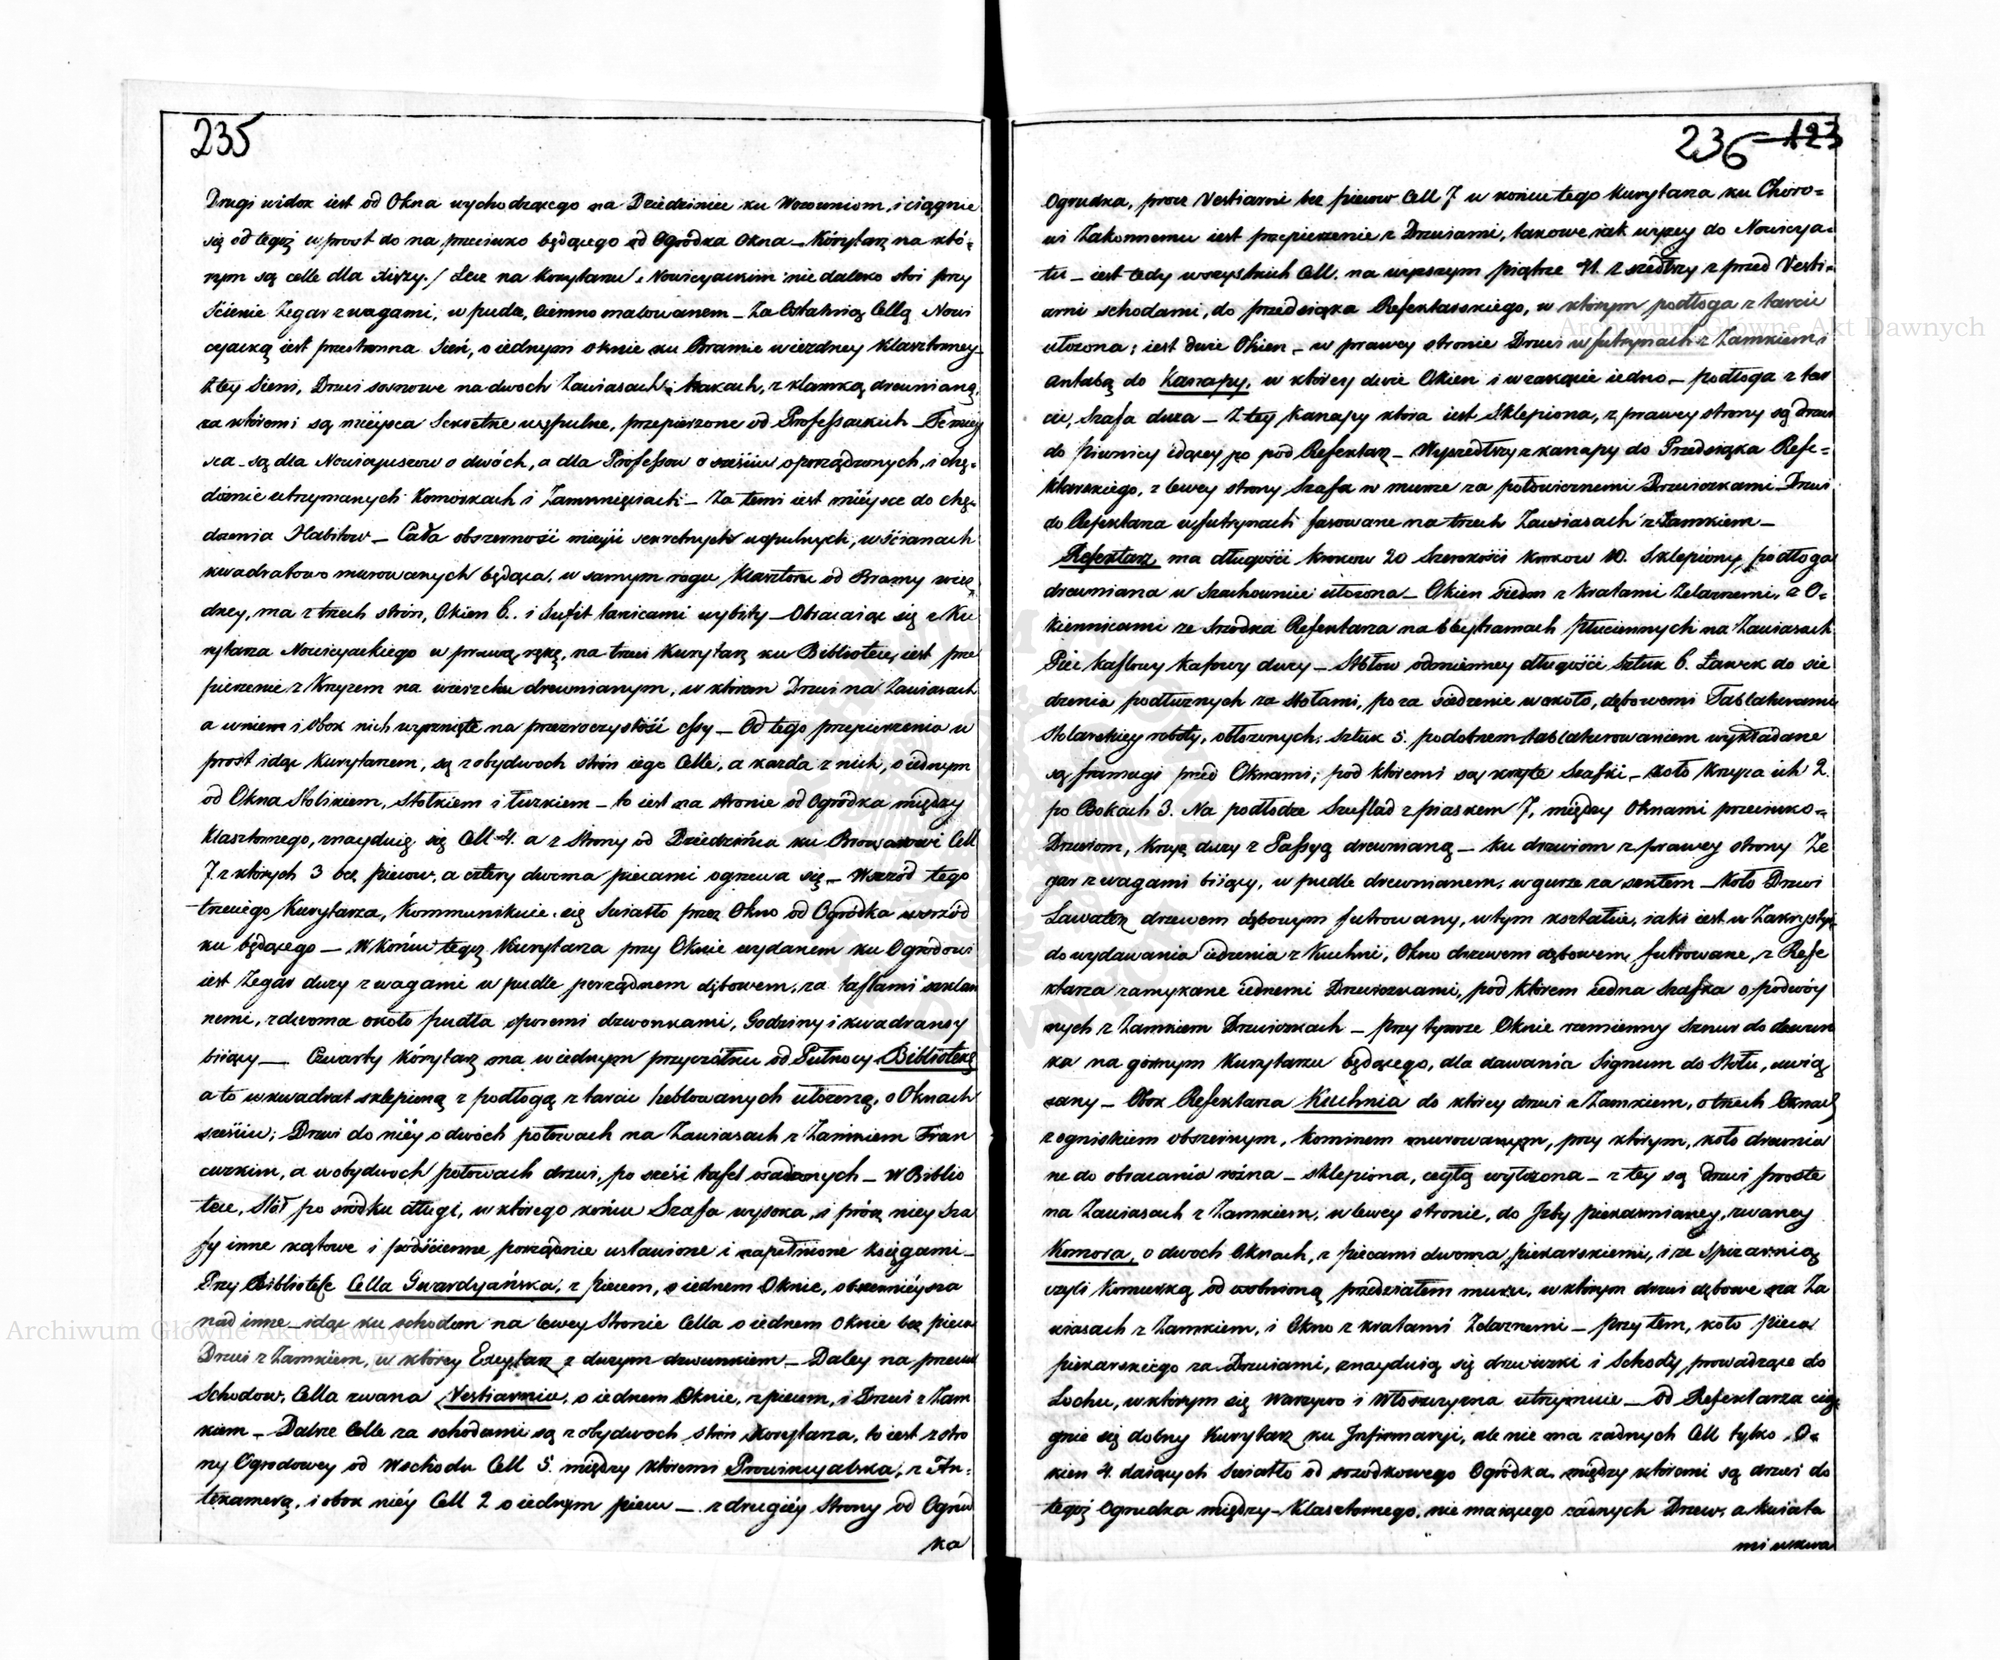 235
Drugi widok iest od Okna wychodzącego na Dziedziniec ku Wozowniom, i ciągnie
się od tegoż wprost do na przeciwko będącego od Ogródka Okna – Kórytarz na któ-
rym są celle dla Xięży. / Lecz na Korytarzu Nowicyackim niedaleko stoi przy
Ścienie Zegar z wagami, w pudle, ciemno malowanem – Za Ostatnią Cellą Nowi
cyacką iest przestronna Sień, o iednym oknie ku Bramie wiezdney Klasztorney –
Z tey Sieni, Drzwi sosnowe na dwoch Zawiasach i hakach, z klamką drewnianą,
za któremi są mieysca Sekretne wspulne, przepierzone od Professackich – Te miey
sca są dla Nowicyuszow o dwóch, a dla Professow o sześciu oporządzonych, i chę-
dożnie utrzymanych Komórkach i Zamknięciach – Za temi iest mieysce do chę-
dożenia Habitow – Cała obszerność mieysc sekretnych wspulnych, w ścianach
kwadratowo murowanych będąca, w samym rogu Klasztoru od Bramy wiez
dney, ma z trzech stron, Okien 6. i Sufit tarcicami wybity – Obracaiąc się z Ku
rytarza Nowicyackiego w prawą rękę, na trzeci Kurytarz ku Bibliotece, iest prze
pierzenie z Krzyżem na wierzchu drewnianym, w którem Drzwi na Zawiasach
a w niem i obok nich wyrznięte na przezroczystość – Od tego przepierzenia w
prost idąc Kurytarzem, są z obydwoch stron iego Celle, a każda z nich, o iednym
od Okna Stolikiem, Stołkiem i łużkiem – to iest na stronie od Ogródka między
Klasztornego, znayduią się Cell 4. a z Strony od Dziedzińca ku Browarowi Cell
7. z których 3 bez piecow, a cztery dwoma piecami ogrzewa się – Wśrzód tego
trzeciego Kurytarza, Kommunikuie się Swiatło przez Okno od Ogródka w środ
ku będącego – W końcu tegoż Kurytarza przy Oknie wydanem ku Ogrodowi
iest Zegar duży z wagami w pudle porządnem dębowem, za taflami szklan
nemi, z dwoma około pudła sporemi dzwonkami, Godziny i kwadransy
biiący — Czwarty kórytarz ma w iednym przyczołku od Pułnocy Bibliotekę
a to w kwadrat sklepioną z podłogą z tarcic heblowanych ułożoną, o Oknach
sześciu; Drzwi do niey o dwóch połowach na Zawiasach z Zamkiem Fran
cuzkim, a w obydwoch połowach drzwi, po sześć tafel osadzonych – W Biblio
tece, Stół po srodku długi, w którego końcu Szafa wysoka, i prócz niey Sza
fy inne kątowe i podścienne porządnie ustawione i napełnione księgami –
Przy Bibliotece Cella Gwardyańska, z piecem, o iednem Oknie, obszernieysza
nad inne – idąc ku schodom na lewey stronie Cella o iednem Oknie bez pieca
Drzwi z Zamkiem, w którey Excytarz z dużym dzwonkiem – Daley na przeciw
Schodow, Cella zwana Vestiarnia, o iednem Oknie, z piecem, i Drzwi z Zam
kiem – Dalsze Celle za schodami są z obydwoch stron Korytarza, to iest z stro
ny Ogrodowey od Wschodu Cell 5. między któremi Prowincyalska, z An-
tekamerą, i obok niéy Cell 2 o iednym piecu – z drugiéy Strony od Ogrud
ka
236 123
Ogrudka, procz Vestiarni bez piecow Cell 7 w końcu tego Kurytarza ku Choro-
wi Zakonnemu iest przepierzenie z Drzwiami, takowe iak wyżey do Nowicya-
tu – iest tedy wszystkich Cell na wyższym piątrze 41. Zszedłszy z przed Vesti-
arni schodami, do przedsiąka Refektarskiego, w którym podłoga z tarcic
ułożona; iest dwie Okien – w prawey stronie Drzwi w futrynach z Zamkiem i
Antabą do Kanapy, w którey dwie Okien i w zakącie iedno – podłoga z tar
cic, Szafa duża – Z tey Kanapy która iest Sklepiona, z prawey strony są drzwi
do Piwnicy idącey po pod Refektarz – Wyszedłszy z kanapy do Przedsiąka Refe-
ktarskiego, z lewey strony Szafa w murze za połowicznemi Drzwiczkami – Drzwi
do Refektarza w futrynach fasowane na trzech Zawiasach z Zamkiem –
Refektarz ma długości krokow 20 Szerokości krokow 10. Sklepiony, podłoga
drewniana w Szachownice ułożona – Okien siedm z kratami Żelaznemi, z O-
kiennicami ze srodka Refektarza na Blejtramach płuciennych na Zawiasach
Piec kaflowy kafowy duży – Stołow odmienney długości Sztuk 6. Ławek do sie
dzenia podłużnych za Stołami, po za siedzenie wokoło, dębowemi Tablaturami
Stolarskiey roboty, obłożonych, sztuk 5. podobnem tablaturowaniem wykładane
są framugi przed Oknami; pod któremi są kryte Szafki – koło Krzyża ich 2
po Bokach 3. Na podłodze Szuflad z piaskiem 7, między Oknami przeciwko-
Drzwiom, Krzyż duży z Passyą drewnianą – Ku drzwiom z prawey strony Ze
gar z wagami biiący, w pudle drewnianem, w gurze za szkłem – Koło Drzwi
Lawaterz drzewem dębowym futrowany, w tym kształcie, iaki iest w Zakrystyi,
do wydawania iedzenia z Kuchni, Okno drzewem dębowem futrowane, z Refe
ktarza zamykane iednemi Drzwiczkami, pod którem iedna Szafka o podwóy
nych z Zamkiem Drzwiczkach – przy tymże Oknie rzemienny Sznur do dzwon
ka na górnym Kurytarzu będącego, dla dawania Signum do Stołu, uwią
zany – Obok Refektarza Kuchnia do którey drzwi z Zamkiem, o trzech Oknach
z ogniskiem obszernym, kominem murowanym, przy którym, koło drewnia
ne do obracania rożna – sklepiona, cegłą wyłożona – z tey są drzwi proste
na Zawiasach z Zamkiem, w lewey stronie, do Izby piekarnianey, zwaney
Komora, o dwoch Oknach, z piecami dwoma piekarskiemi, i ze Spiżarnią
czyli Komurką odosobnioną przedziałem muru, w którym drzwi dębowe na Za
wiasach z Zamkiem, i Okno z kratami Żelaznemi – przy tem, koło pieca
piekarskiego za Drzwiami, znayduią się drzwiczki i Schody prowadzące do
Lochu, w którym się Warzywo i Włoszczyzna utrzymuie – od Refektarza ciąg
gnie się dolny Kurytarz ku Infirmaryi, ale nie ma żadnych Cell tylko O-
kien 4. daiących Swiatło od srzodkowego Ogródka, między którymi są drzwi do
tegoż Ogrudka między-Klasztornego, nie maiącego żadnych Drzew, a kwiata
mi w kwa
Archiwum Główne Akt Dawnych
Archiwum Główne Akt Dawnych